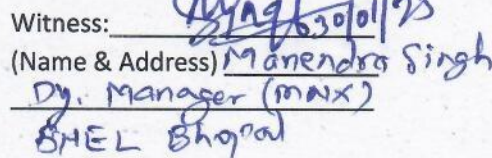 Witness: 30/01/23
(Name & Address) Manendra Singh
Dy. Manager (MNX)
BHEL Bhopal